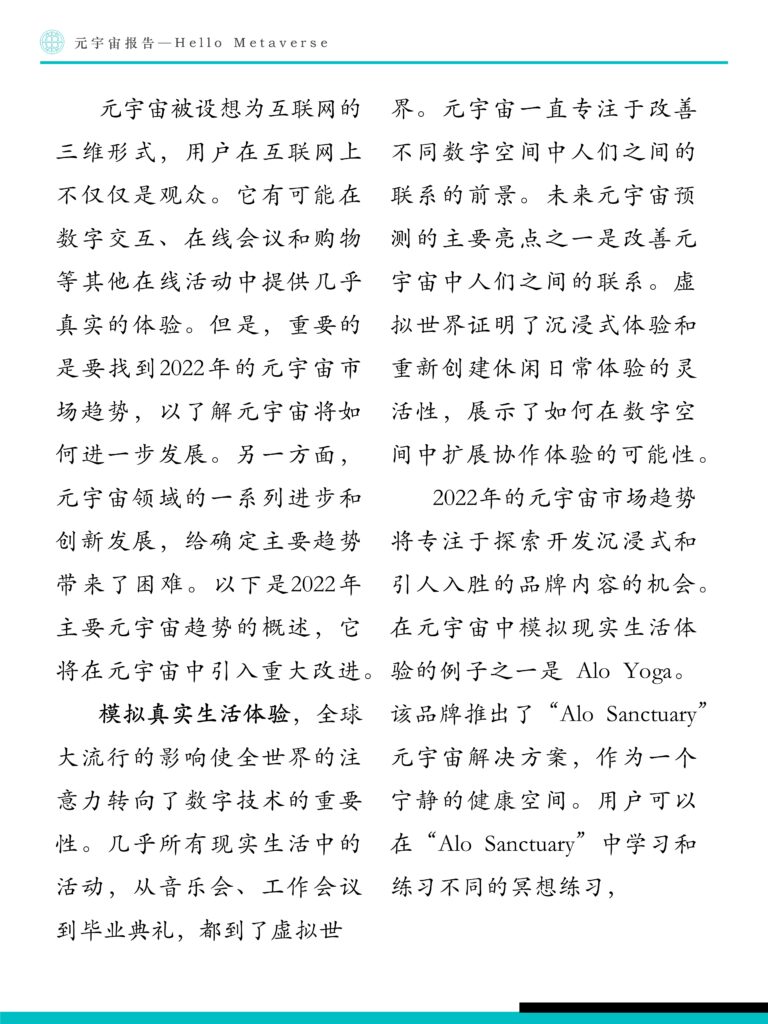 元宇宙报告—Hello Metaverse
元宇宙被设想为互联网的
三维形式，用户在互联网上
不仅仅是观众。它有可能在
数字交互、在线会议和购物
等其他在线活动中提供几乎
真实的体验。但是，重要的
是要找到2022年的元宇宙市
场趋势，以了解元宇宙将如
何进一步发展。另一方面，
元宇宙领域的一系列进步和
创新发展，给确定主要趋势
带来了困难。以下是2022年
主要元宇宙趋势的概述，它
将在元宇宙中引入重大改进。
模拟真实生活体验，全球
大流行的影响使全世界的注
意力转向了数字技术的重要
性。几乎所有现实生活中的
活动，从音乐会、工作会议
到毕业典礼，都到了虚拟世
界。元宇宙一直专注于改善
不同数字空间中人们之间的
联系的前景。未来元宇宙预
测的主要亮点之一是改善元
宇宙中人们之间的联系。虚
拟世界证明了沉浸式体验和
重新创建休闲日常体验的灵
活性，展示了如何在数字空
间中扩展协作体验的可能性。
2022年的元宇宙市场趋势
将专注于探索开发沉浸式和
引人入胜的品牌内容的机会。
在元宇宙中模拟现实生活体
验的例子之一是 Alo Yoga。
该品牌推出了“Alo Sanctuary”
元宇宙解决方案，作为一个
宁静的健康空间。用户可以
在“Alo Sanctuary”中学习和
练习不同的冥想练习，